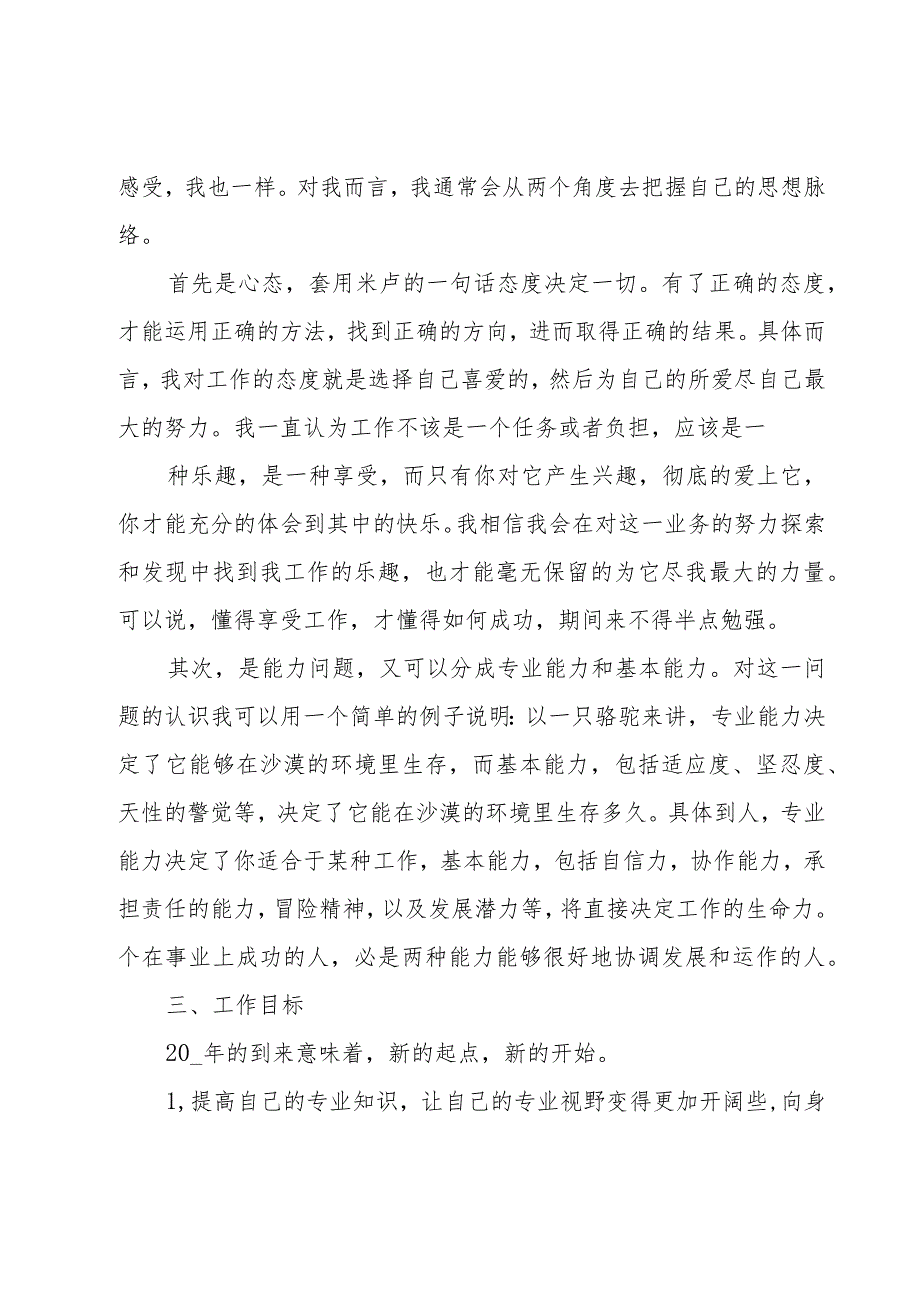 感受，我也一样。对我而言，我通常会从两个角度去把握自己的思想脉
络。
首先是心态，套用米卢的一句话态度决定一切。有了正确的态度，
才能运用正确的方法，找到正确的方向，进而取得正确的结果。具体而
言，我对工作的态度就是选择自己喜爱的，然后为自己的所爱尽自己最
大的努力。我一直认为工作不该是一个任务或者负担，应该是一
种乐趣，是一种享受，而只有你对它产生兴趣，彻底的爱上它，
你才能充分的体会到其中的快乐。我相信我会在对这一业务的努力探索
和发现中找到我工作的乐趣，也才能毫无保留的为它尽我最大的力量。
可以说，懂得享受工作，才懂得如何成功，期间来不得半点勉强。
其次，是能力问题，又可以分成专业能力和基本能力。对这一问
题的认识我可以用一个简单的例子说明：以一只骆驼来讲，专业能力决
定了它能够在沙漠的环境里生存，而基本能力，包括适应度、坚忍度、
天性的警觉等，决定了它能在沙漠的环境里生存多久。具体到人，专业
能力决定了你适合于某种工作，基本能力，包括自信力，协作能力，承
担责任的能力，冒险精神，以及发展潜力等，将直接决定工作的生命力。
个在事业上成功的人，必是两种能力能够很好地协调发展和运作的人。
三、工作目标
20_年的到来意味着，新的起点，新的开始。
1,提高自己的专业知识，让自己的专业视野变得更加开阔些,向身